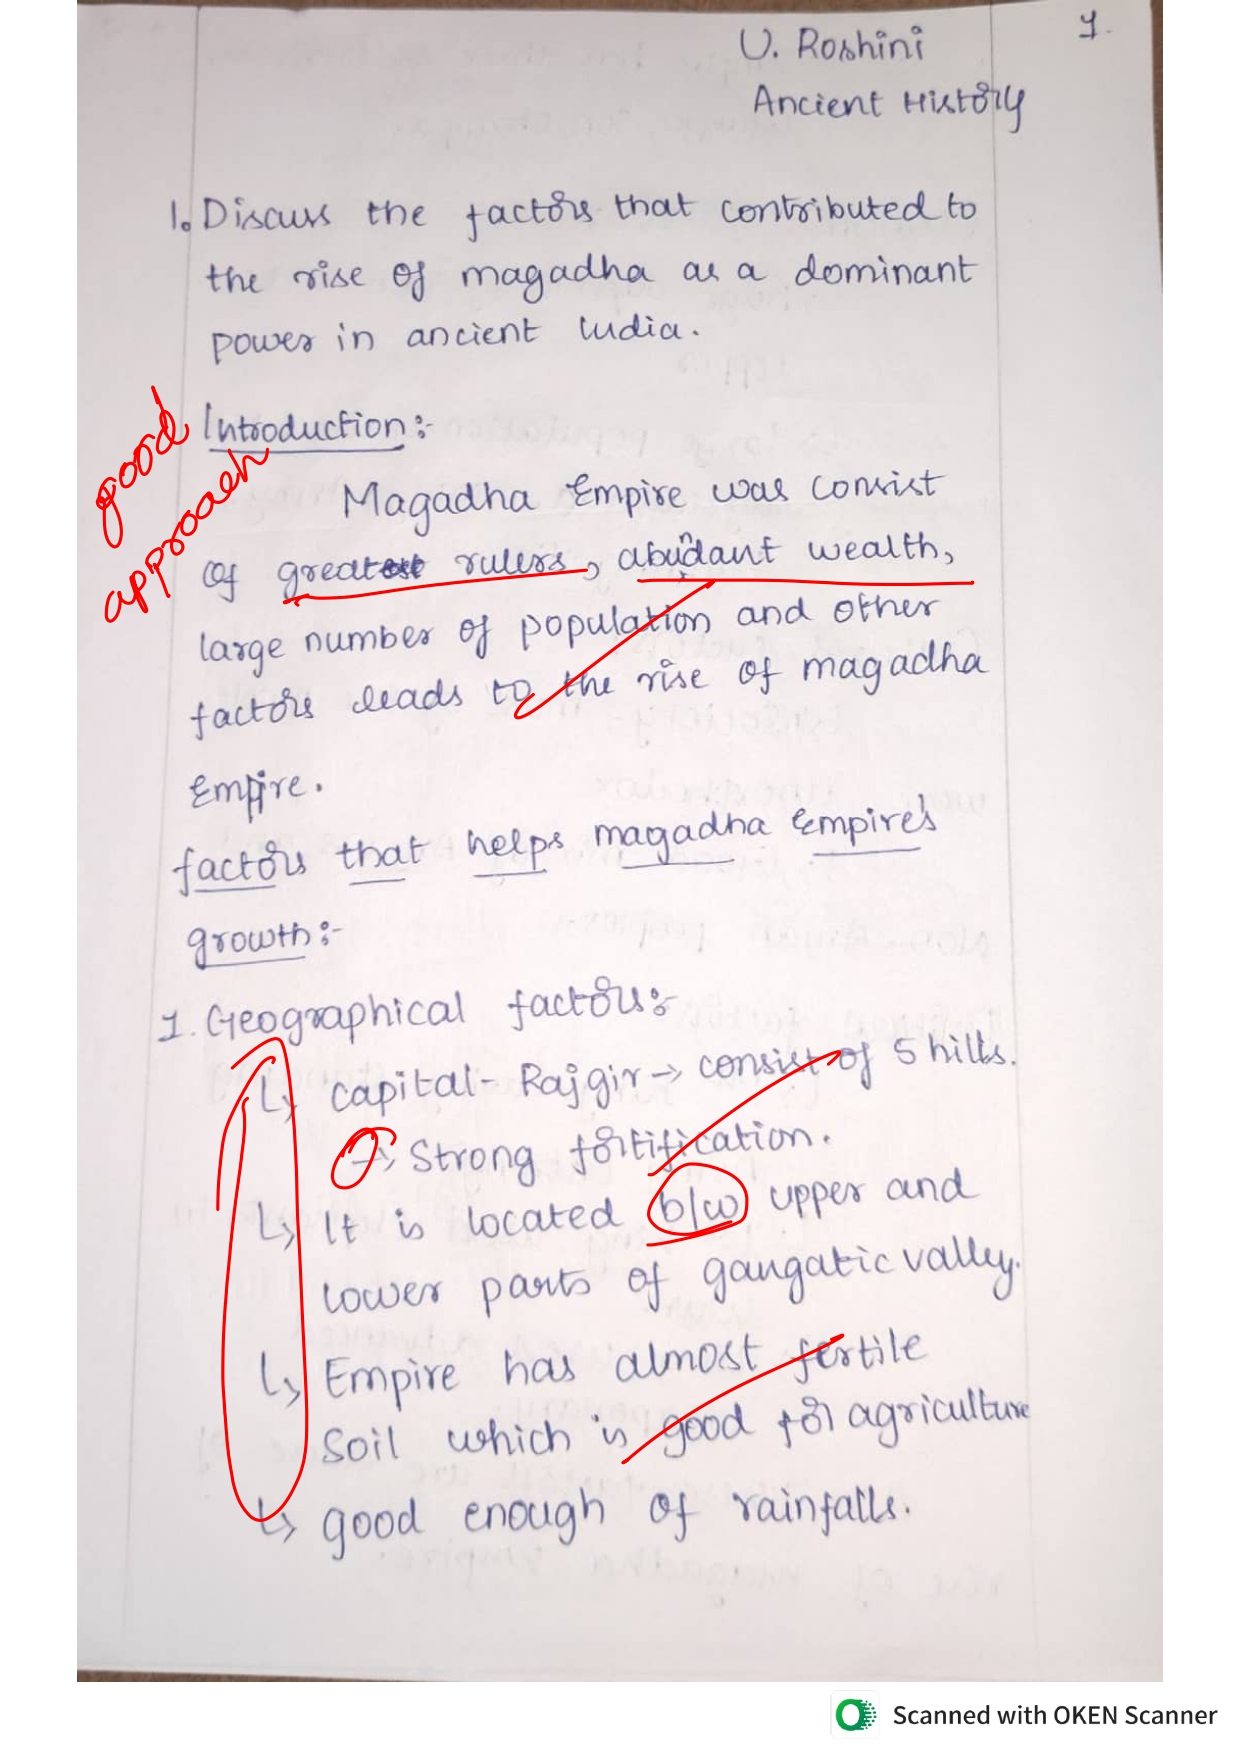 U. Roshini
1.
Ancient History
1. Discuss the factors that contributed to
the rise of magadha as a dominant
power in ancient India.
good
approach
Introduction:-
Magadha Empire was consist
of greatest rulers, abundant wealth,
large number of population and other
factors leads to the rise of magadha
Empire.
factors that helps magadha Empire's
growth:-
1. Geographical factors:-
↳ capital - Rajgir → consist of 5 hills.
→ Strong fortification.
↳ It is located b/w upper and
lower parts of gangatic valley.
↳ Empire has almost fertile
Soil which is good for agriculture
↳ good enough of rainfalls.
Scanned with OKEN Scanner